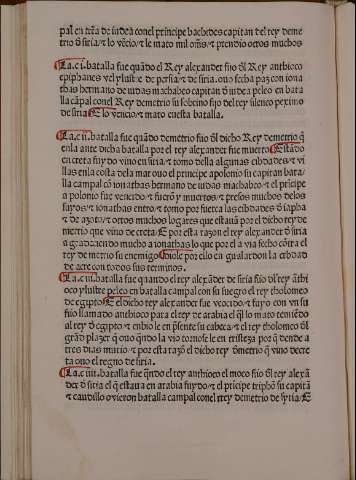 pal en trr̃a de iudea con el principe bachides capitan del rey deme
trio d̃ siria ⁊ lo vẽcio ⁊ le mato mil oms̃ ⁊ prendio otros muchos
La .c i. batalla fue quãdo el Rey alexander fijo d̃l Rey anthioco
epiphanes vel ylustre de persia ⁊ de siria. ouo fecha paz con iona
thas hermano de iudas machabeo capitan d̃ iudea peleo en bata
lla cãpal con el Rey demetrio su sobrino fijo del rey silenco
de siria E lo vencio ⁊ mato en esta batalla.
La .c ii. batalla fue quãdo demetrio fijo d̃l dicho Rey demetrio q̃
en la ante dicha batalla por el rey alexander fue muerto Estãdo
en creta fuydo vino en siria ⁊ tomo della algunas cibdades ⁊ vi
llas en la costa dela mar ouo el principe apolonio su capitan bata
lla campal cõ ionathas hermano de iudas machabeo ⁊ el prĩcipe
a polonio fue vencido ⁊ fuerõ y muertos ⁊ presos muchos delos
suyos ⁊ ionathas entro ⁊ tomo por fuerça las cibdades d̃ iapha
⁊ de azoto ⁊ otros muchos logares que estauã por el dicho rey de
metrio que vino de creta E por esta razon el rey alexander d̃ siria
a gradeciendo mucho a ionathas lo que por el a via fecho cõtra el
rey demetrio su enemigo diole por ello en gualardon la cibdad
de acre con todos sus terminos.
La .c iii. batalla fue quando el rey alexãder de siria fijo d̃l rey ãthi
oco ylustre peleo en batalla campal con su suegro el rey tholomeo
de egipto E el dicho rey alexander fue vencido ⁊ fuyo con vn su
fijo llamado anthioco para el rey de arabia el q̃l lo mato temiẽdo
al rey d̃ egipto ⁊ enbio le en p̃sente su cabeça ⁊ el rey tholomeo d̃l
grãd plazer q̃ ouo q̃ndo la vio tornose le en tristeza por q̃ dende a
tres dias murio ⁊ por esta razõ el dicho rey d̃metrio q̃ vino decre
ta ouo el regno de siria.
La .c iiii. batalla fue q̃ndo el rey anthioco el moço fijo d̃l rey alexã
der d̃ siria el q̃ estaua en arabia fuydo ⁊ el prĩcipe triphõ su capitã
⁊ caudillo ovieron batalla campal con el rey demetrio de syria E